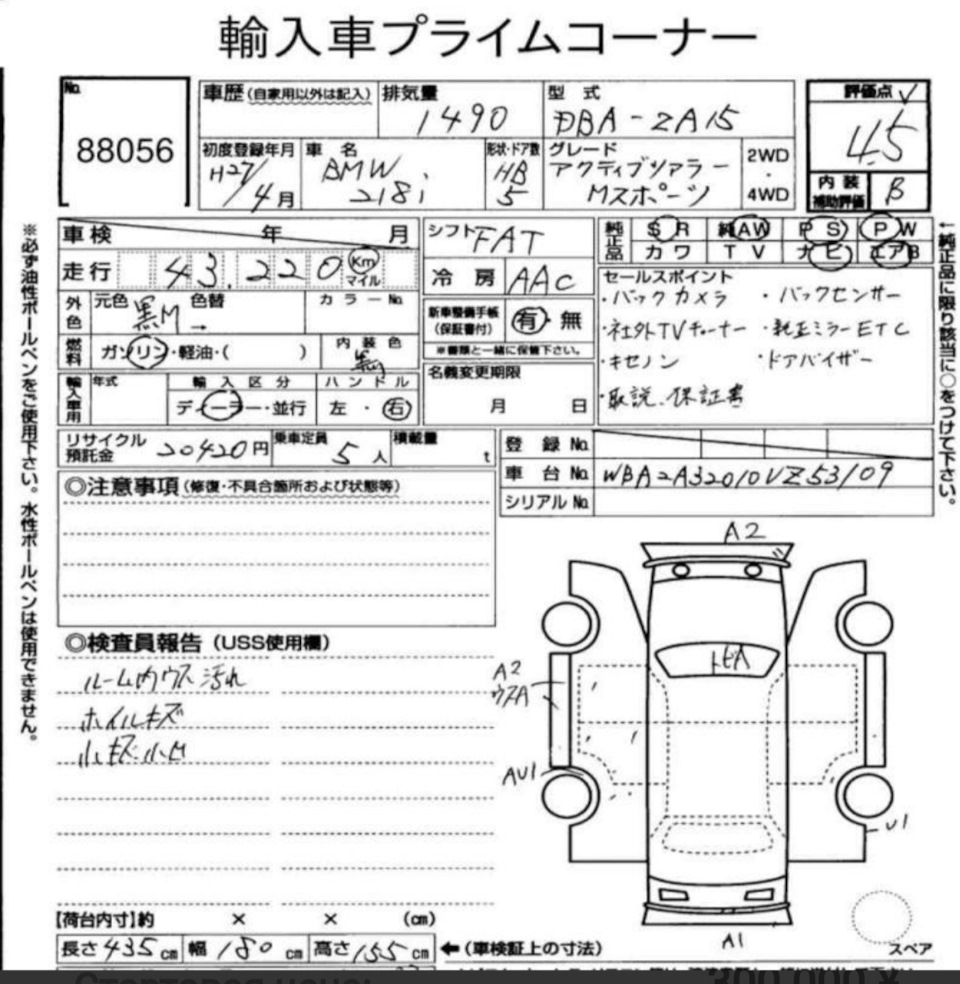 輸入車プライムコーナー
No. 88056
車歴 (自家用以外は記入)
排気量 1490
型式 DBA-2A15
評価点 4.5
初度登録年月 H27/4月
車名 BMW 218i
形状・ドア数 HB 5
グレード アクティブツアラー Mスポーツ
2WD・4WD
内装補助評価 B
車検 年 月
走行 43.220 Km マイル
シフト FAT
冷房 AAC
純正品 SR 純AW PS PW
カワ TV ナビ エアB
←純正品に限り該当に○をつけて下さい。
※必ず油性ボールペンをご使用下さい。水性ボールペンは使用できません。
外色 元色 黒M 色替 → カラーNo.
燃料 ガソリン・軽油・( )
内装色 黒
新車整備手帳(保証書付) 有・無
※書類と一緒に保管下さい。
セールスポイント
・バックカメラ ・バックセンサー
・社外TVチューナー ・純正ミラーETC
・キセノン ・ドアバイザー
・取説、保証書
輸入車用 年式 輸入区分 ディーラー・並行 ハンドル 左・右
名義変更期限 月 日
リサイクル預託金 20420円 乗車定員 5人 積載量 t
登録No.
車台No. WBA2A32010VZ53109
シリアルNo.
◎注意事項 (修復・不具合箇所および状態等)
◎検査員報告 (USS使用欄)
ルーム内ウス汚れ
ホイルキズ
小キズ小凹
A2
トビA
A2
ウスA
AU1
U1
A1
スペア
【荷台内寸】約 × × (cm)
長さ435cm 幅180cm 高さ155cm ←(車検証上の寸法)